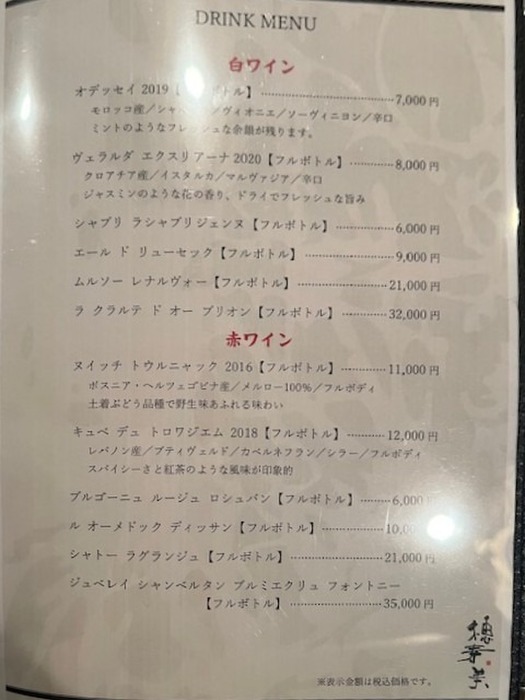 DRINK MENU
白ワイン
オデッセイ 2019 ボトル】 7,000 円
モロッコ産／シャ ヴィオニエ／ソーヴィニヨン／辛口
ミントのようなフレッシュな余韻が残ります。
ヴェラルダ エクスリアーナ 2020【フルボトル】 8,000 円
クロアチア産／イスタルカ／マルヴァジア／辛口
ジャスミンのような花の香り、ドライでフレッシュな旨み
シャブリ ラシャブリジェンヌ【フルボトル】 6,000 円
エール ド リューセック【フルボトル】 9,000 円
ムルソー レナルヴォー【フルボトル】 21,000 円
ラ クラルテ ド オー ブリオン【フルボトル】 32,000 円
赤ワイン
ヌイッチ トウルニャック 2016【フルボトル】 11,000 円
ボスニア・ヘルツェゴビナ産／メルロー100％／フルボディ
土着ぶどう品種で野生味あふれる味わい
キュベ デュ トロワジエム 2018【フルボトル】 12,000 円
レバノン産／プティヴェルド／カベルネフラン／シラー／フルボディ
スパイシーさと紅茶のような風味が印象的
ブルゴーニュ ルージュ ロシュバン【フルボトル】 6,000
ル オーメドック ディッサン【フルボトル】 10,00
シャトー ラグランジュ【フルボトル】 21,000 円
ジュベレイ シャンベルタン プルミエクリュ フォントニー
【フルボトル】 35,000 円
※表示金額は税込価格です。